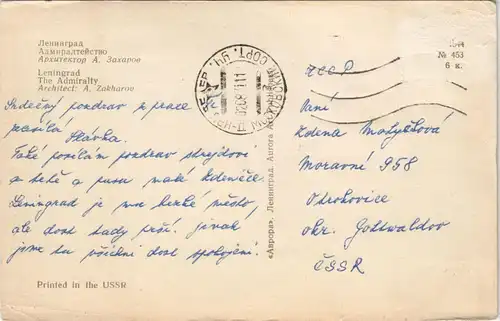 Ленинград
Адмиралтейство
Архитектор А. Захаров
Leningrad
The Admiralty
Architect: A. Zakharov
Srdečný pozdrav z prace
zasílá Slávka.
Také posílám pozdrav strejdovi
a tetě a pusu malé Zdeněčce.
Leningrad je moc hezké město,
ale dost tady prší. Jinak
jsme tu všichni dost spokojeni.
Printed in the USSR
«Аврора». Ленинград. Aurora
1974
№ 453
6 к.
ČSSR
Paní
Zdena Matyčková
Moravní 958
Otrokovice
okr. Gottwaldov
ČSSR